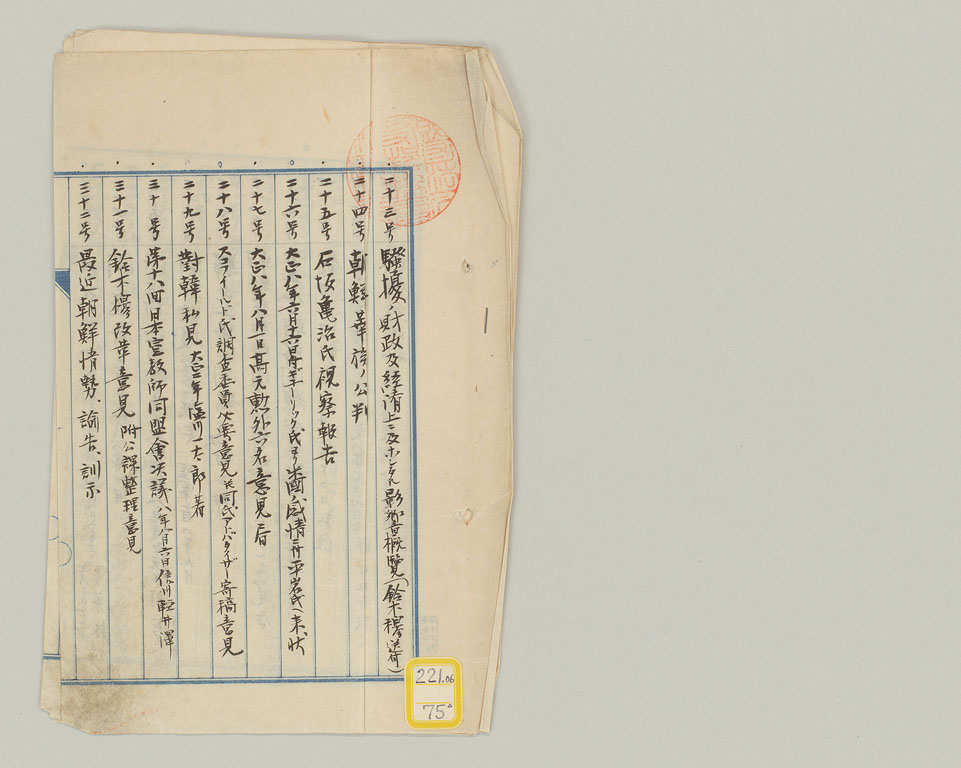 二十三号 騒擾ノ財政及経済上ニ及ホシタル影響概覧(鈴木穆送荷)
二十四号 朝鮮華族ノ公判
二十五号 石坂亀治氏視察報告
二十六号 大正八年六月十六日 ギューリック氏ヨリ米国感情ニ付平岩氏ヘ来状
二十七号 大正八年八月一日高元勲外六名意見
二十八号 スコフィールド氏調査委員必要意見 同氏アドバタイザー寄稿意見
二十九号 對韓私見 大正二年塩川一太郎著
三十号 第十八回日本宣教師同盟會决議 八年八月六日信州軽井澤
三十一号 鈴木穆改革意見 附公課整理意見
三十二号 最近朝鮮情勢、諭告、訓示
221.06
75